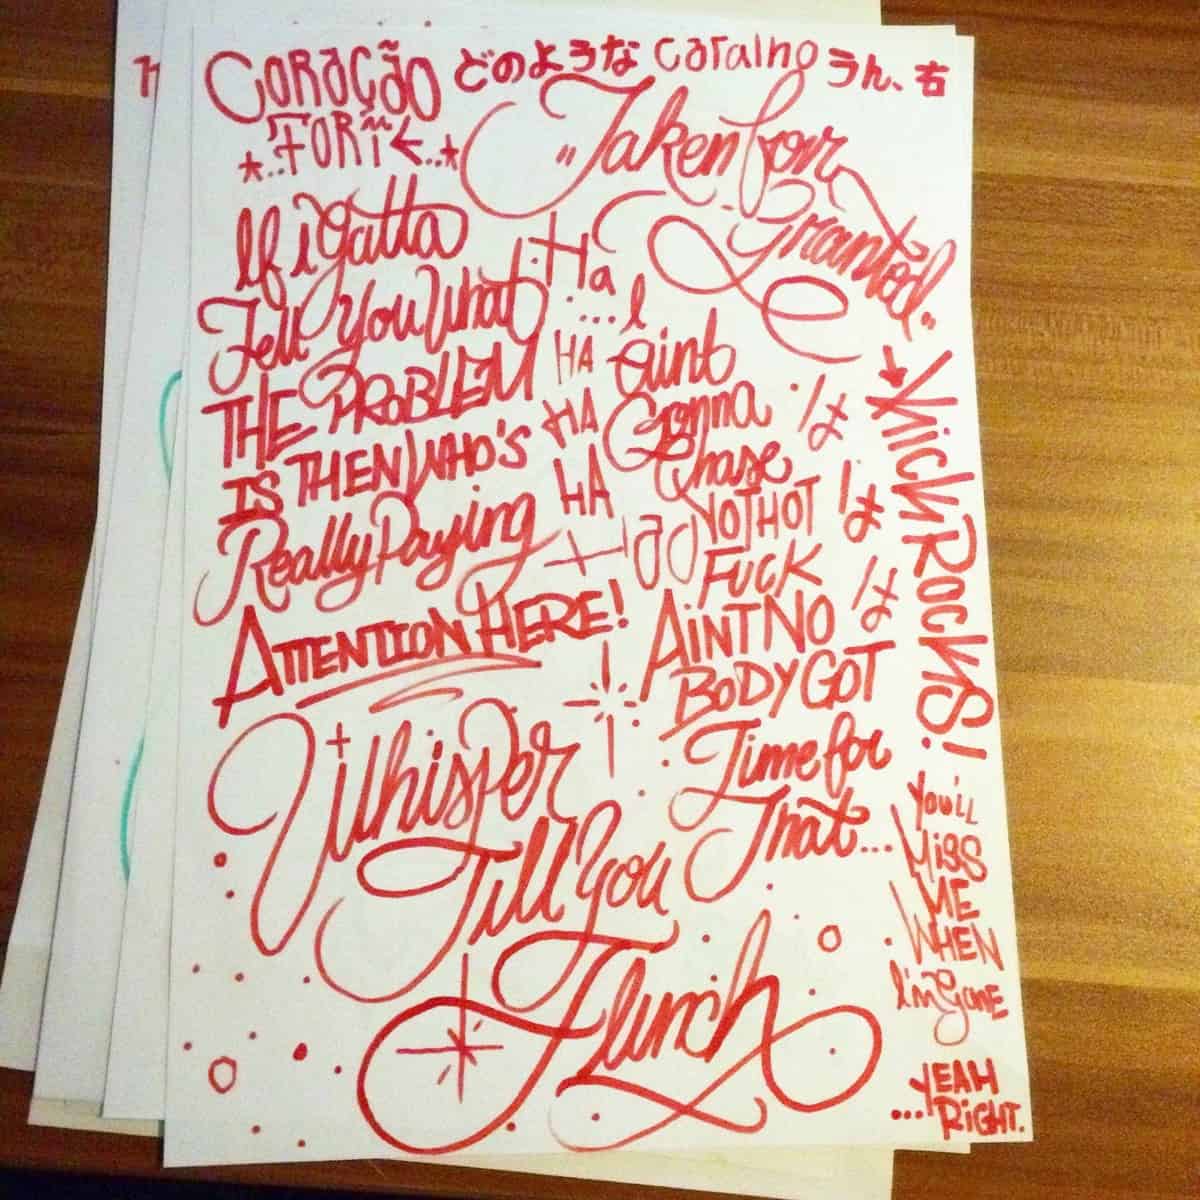 CORAÇÃO どのような caralho うん、右
*..FORiK..*
"Taken for
Granted"
If i gatta
Tell You What
THE PROBLEM
IS THEN WHO'S
Really Paying
ATTENTION HERE!
Ha
HA
HA
HA
Haa
...I
aint
Gonna
Chase
YOTHOT
FUCK
AiNT NO
BODY GOT
Time for
That...
KickRocks!
Whisper
Till You
Flinch
YOU'LL
MiSS
ME
WHEN
I'm GonE
...YEAH
RiGHT.